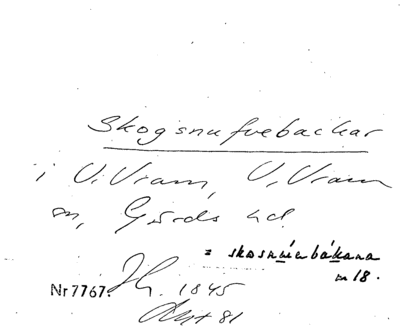 Skogsnufvebackar
i V. Vram, V. Vram
sn, Gärds hd.
= skosnúebákana
m 18.
Nr 7767. 1845
81